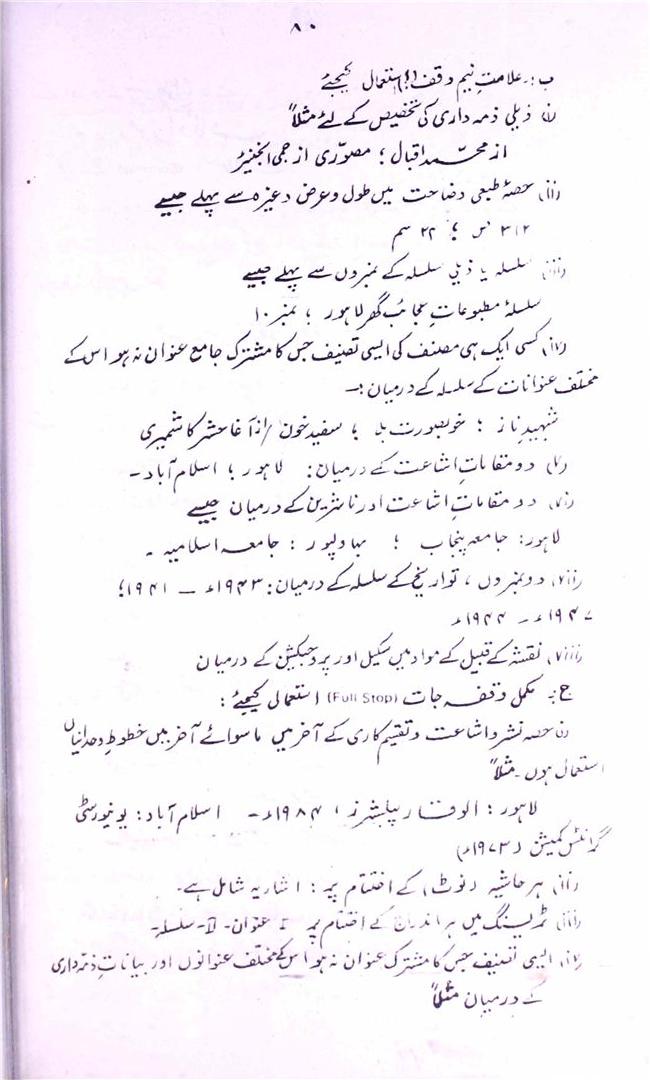 ۸۰
ب:۔ علامتِ نیم وقف (؛) استعمال کیجئے
(i) ذیلی ذمہ داری کی تخصیص کے لئے مثلاً
از محمد اقبال ؛ مصوّری از جمی انجنیئر
(ii) حصۂ طبعی وضاحت میں طول و عرض وغیرہ سے پہلے جیسے
۳۱۲ ص ؛ ۲۲ سم
(iii) سلسلہ یا ذیلی سلسلہ کے نمبروں سے پہلے جیسے
سلسلۂ مطبوعاتِ عجائب گھر لاہور ؛ نمبر ۱۰
(iv) کسی ایک ہی مصنف کی ایسی تصنیف جس کا مشترک جامع عنوان نہ ہو اس کے
مختلف عنوانات کے سلسلہ کے درمیان :۔
شہیدِ ناز ؛ خوبصورت بلا ؛ سفید خون / از آغا حشر کاشمیری
(v) دو مقاماتِ اشاعت کے درمیان : لاہور ؛ اسلام آباد ۔
(vi) دو مقاماتِ اشاعت اور ناشرین کے درمیان جیسے
لاہور : جامعہ پنجاب ؛ بہاولپور : جامعہ اسلامیہ ۔
(vii) دو نمبروں ، تواریخ کے سلسلہ کے درمیان : ۱۹۴۳ء ـــ ۱۹۴۱ ؛
۱۹۴۷ء ــ ۱۹۴۴ء
(viii) نقشہ کے قبیل کے مواد میں سکیل اور پروجیکشن کے درمیان
ج :۔ مکمل وقفہ جات (Full Stop) استعمال کیجیئے :
(i) حصہ نشر و اشاعت و تقیم کاری کے آخر میں ماسوائے آخر میں خطوطِ وحدانیاں
استعمال ہوں ۔ مثلاً
لاہور : الوقار پبلشرز ، ۱۹۸۴ء ۔ اسلام آباد : یونیورسٹی
گرانٹس کمیشن (۱۹۷۳ء)
(ii) ہر حاشیہ (نوٹ) کے اختتام پر : اشاریہ شامل ہے ۔
(iii) ٹریسنگ میں ہر اندراج کے اختتام پر I عنوان ۔ II ۔ سلسلہ ۔
(iv) ایسی تصنیف جس کا مشترک عنوان نہ ہو اس کے مختلف عنوانوں اور بیاناتِ ذمہ داری
کے درمیان مثلاً